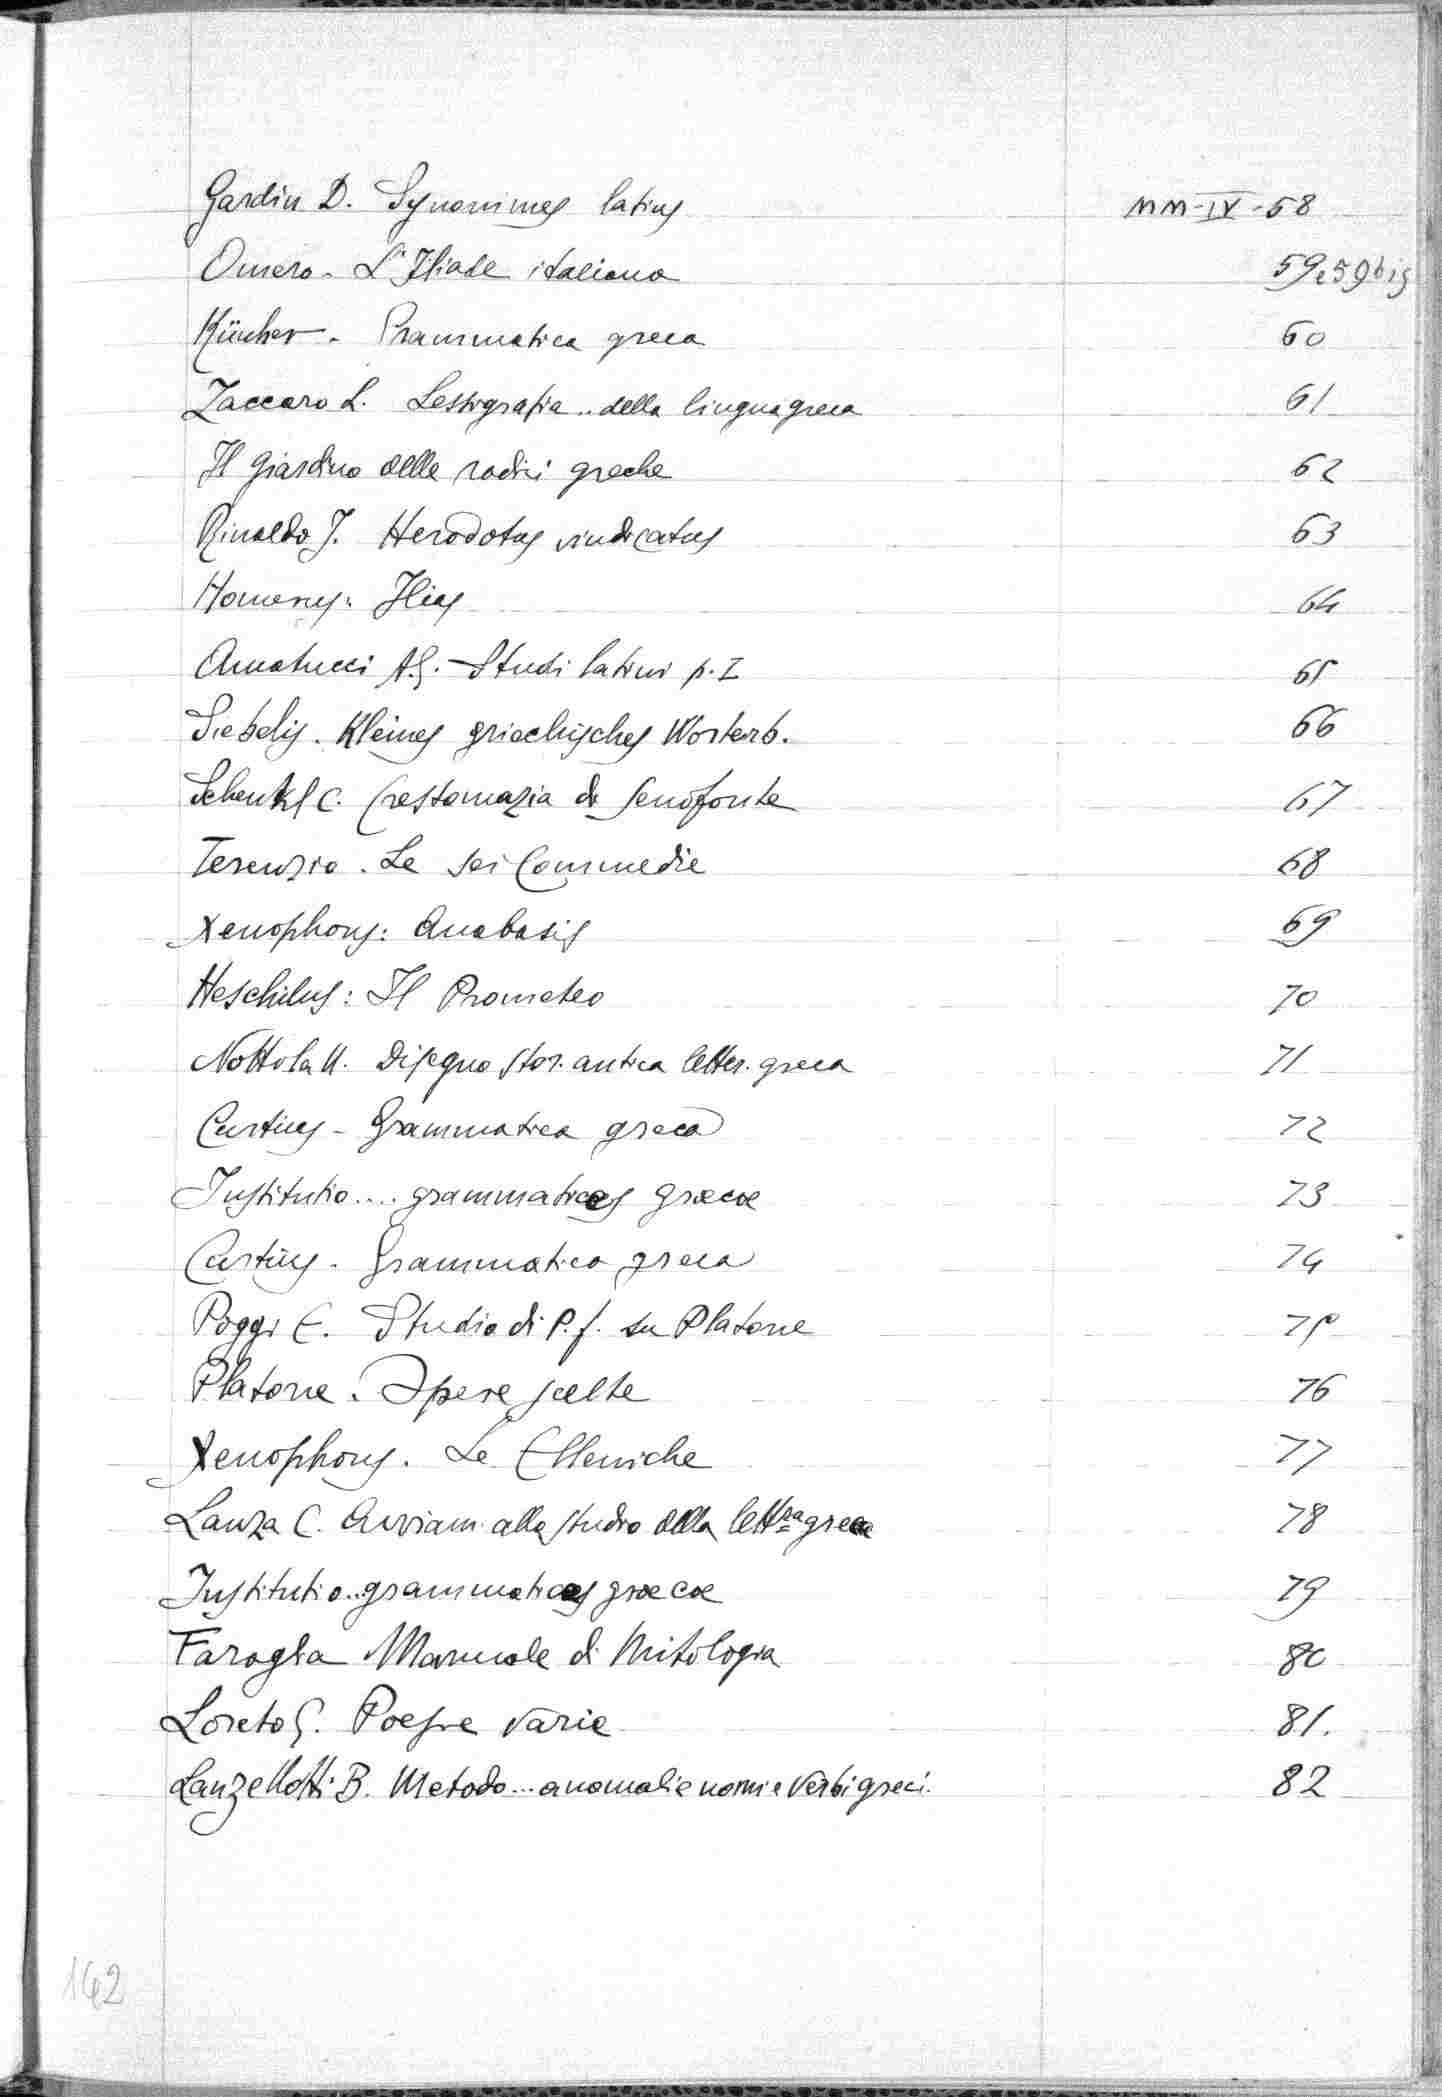 Gardin D. Synonimes latins MM-IV-58
Omero - L'Iliade italiana 59e59bis
Küuher - Grammatica greca 60
Zaccaro L. Lessigrafia .. della lingua greca 61
Il Giardino delle radici greche 62
Rinaldo J. Herodotus vindicatus 63
Homerus: Ilias 64
Amatucci A.G. - Studi latini p. I 65
Siebelis. Kleines griechisches Wörterb. 66
Schenkl C. Crestomazia di Senofonte 67
Terenzio. Le sei Commedie 68
Xenophons: Anabasis 69
Heschilus: Il Prometeo 70
Nottola U. Disegno stor. antica letter. greca 71
Curtius - Grammatica greca 72
Institutio.... grammatices græcæ 73
Curtius - Grammatica greca 74
Poggi E. Studio di P. f. su Platone 75
Platone. Opere scelte 76
Xenophons. Le Elleniche 77
Lanza C. Avviam. allo studio della lettra greca 78
Institutio...grammatices græcæ 79
Faraglia Manuale di Mitologia 80
Loreto G. Poesie varie 81.
Lanzellotti B. Metodo... anomalie nomi e verbi greci. 82
142